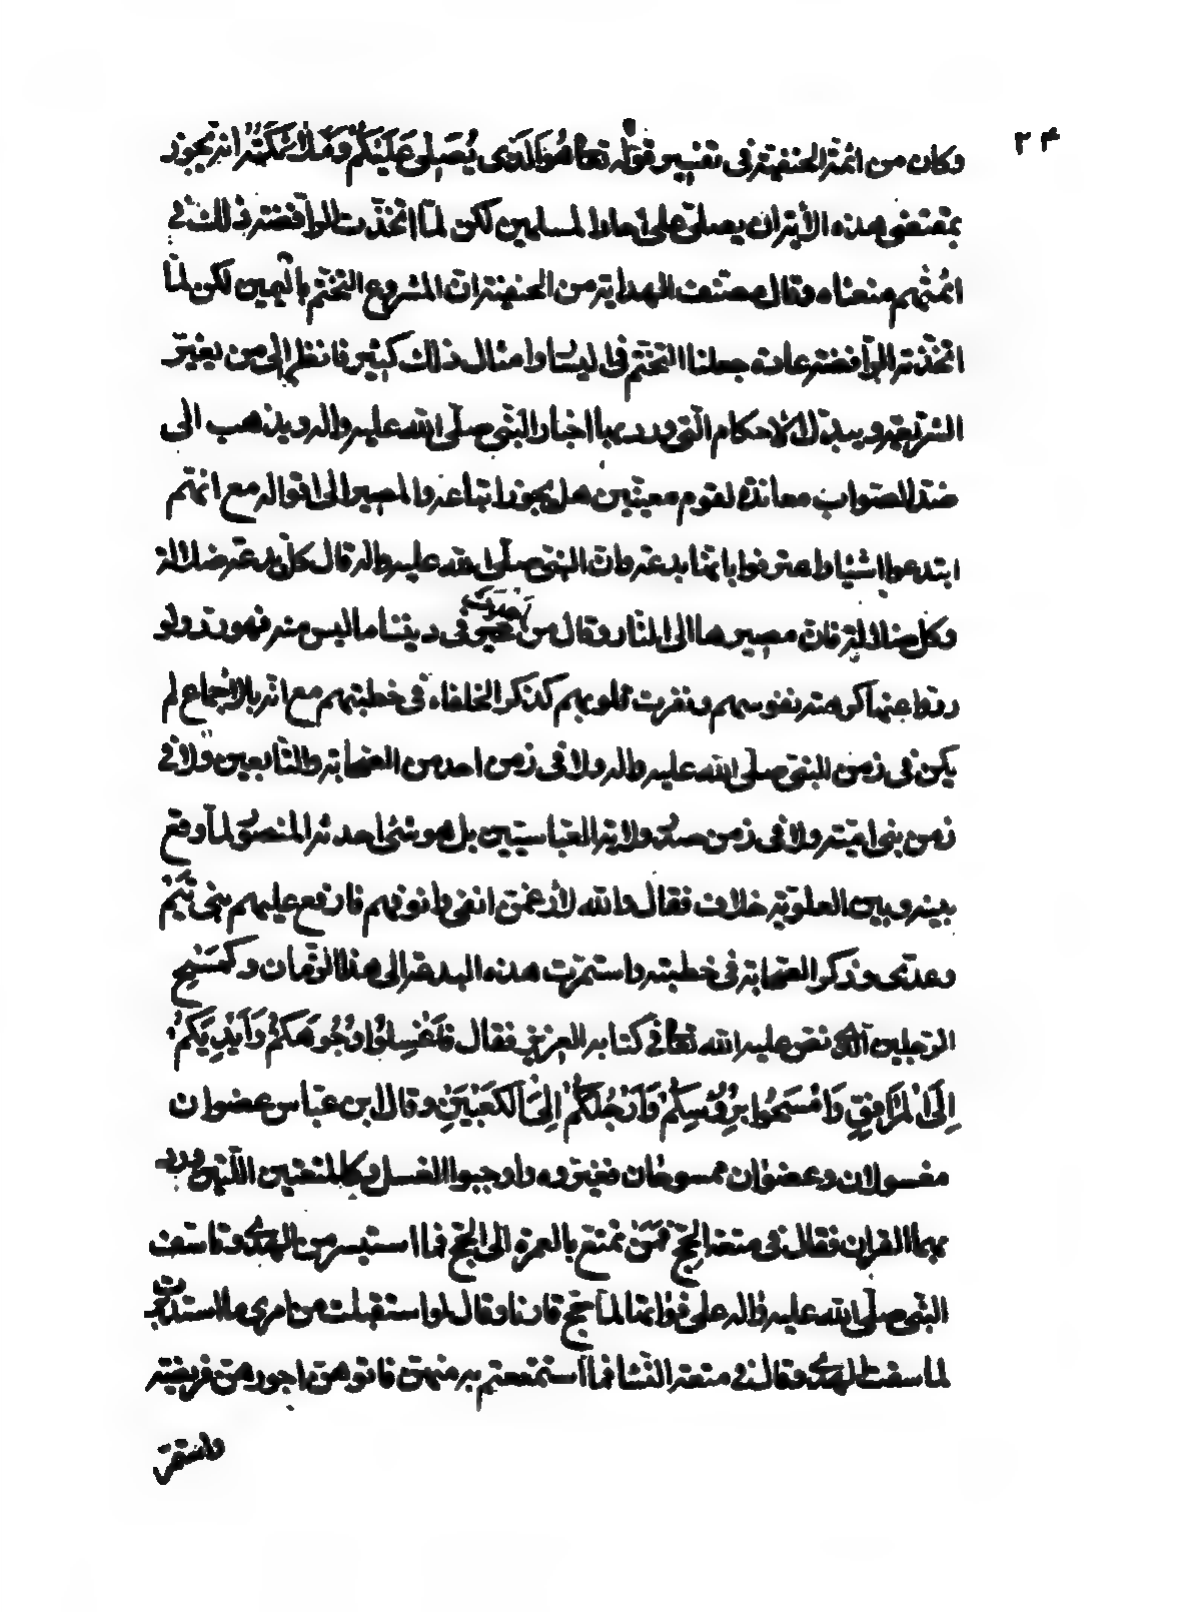 ٢٤
وكان من ائمة الحنفية فى تفسير قوله تعالى هُوَ الَّذى يُصَلّى عَلَيْكُمْ وَمَلَائِكَتُهُ انه يجوز
بمقتضى هذه الآية ان يصلى على آحاد المسلمين لكن لمّا اتخذت الرافضة ذلك فى
ائمتهم منعناه وقال مصنف الهداية من الحنفية ان المشروع التختم باليمين لكن لمّا
اتخذته الرافضة عادة جعلنا التختم فى اليسار وامثال ذلك كثير فانظر الى من يغير
الشريعة ويبدل الاحكام التى ورد بها اخبار النبى صلّى الله عليه واله ويذهب الى
ضد الصواب معاندة لقوم معينين هل يجوز اتباعه والمصير الى اقواله مع انهم
ابتدعوا اشياء واعترفوا بانها بدعة وان النبى صلّى الله عليه واله قال كل بدعة ضلالة
وكل ضلالة فان مصيرها الى النار وقال من احدث فى ديننا ما ليس منه فهو رد ولو
ردوا عنها كرهته نفوسهم ونفرت قلوبهم كذكر الخلفاء فى خطبتهم مع انه بالاجماع لم
يكن فى زمن النبى صلّى الله عليه واله ولا فى زمن احد من الصحابة والتابعين ولا فى
زمن بنى امية ولا فى زمن صدر ولاية العباسيين بل هو شئ احدثه المنصور لما وقع
بينه وبين العلوية خلاف فقال والله لأرغمن انفى وانوفهم فارفع عليهم بنى تَيْم
وعدى وذكر الصحابة فى خطبته واستمرت هذه البدعة الى هذا الزمان وكمسح
الرجلين الذى نص عليه الله تعالى فى كتابه العزيز فقال فَاغْسِلُوا وُجُوهَكُمْ وَاَيْدِيَكُمْ
اِلَى الْمَرَافِقِ وَامْسَحُوا بِرُؤُسِكُمْ وَاَرْجُلَكُمْ اِلَى الْكَعْبَيْنِ وقال ابن عباس عضوان
مغسولان وعضوان ممسوحان فغيروه واوجبوا الغسل وكالمتعتين اللتين ورد
بهما القران فقال فى متعة الحج فَمَنْ تمتع بالعمرة الى الحج فما استيسر من الهدى وتأسف
النبى صلّى الله عليه واله على فواتها لما حج قارنا وقال لو استقبلت من امرى ما استدبرت
لما سقت الهدى وقال فى متعة النساء فما استمتعتم به منهن فاتوهن اجورهن فريضة
واستمرت